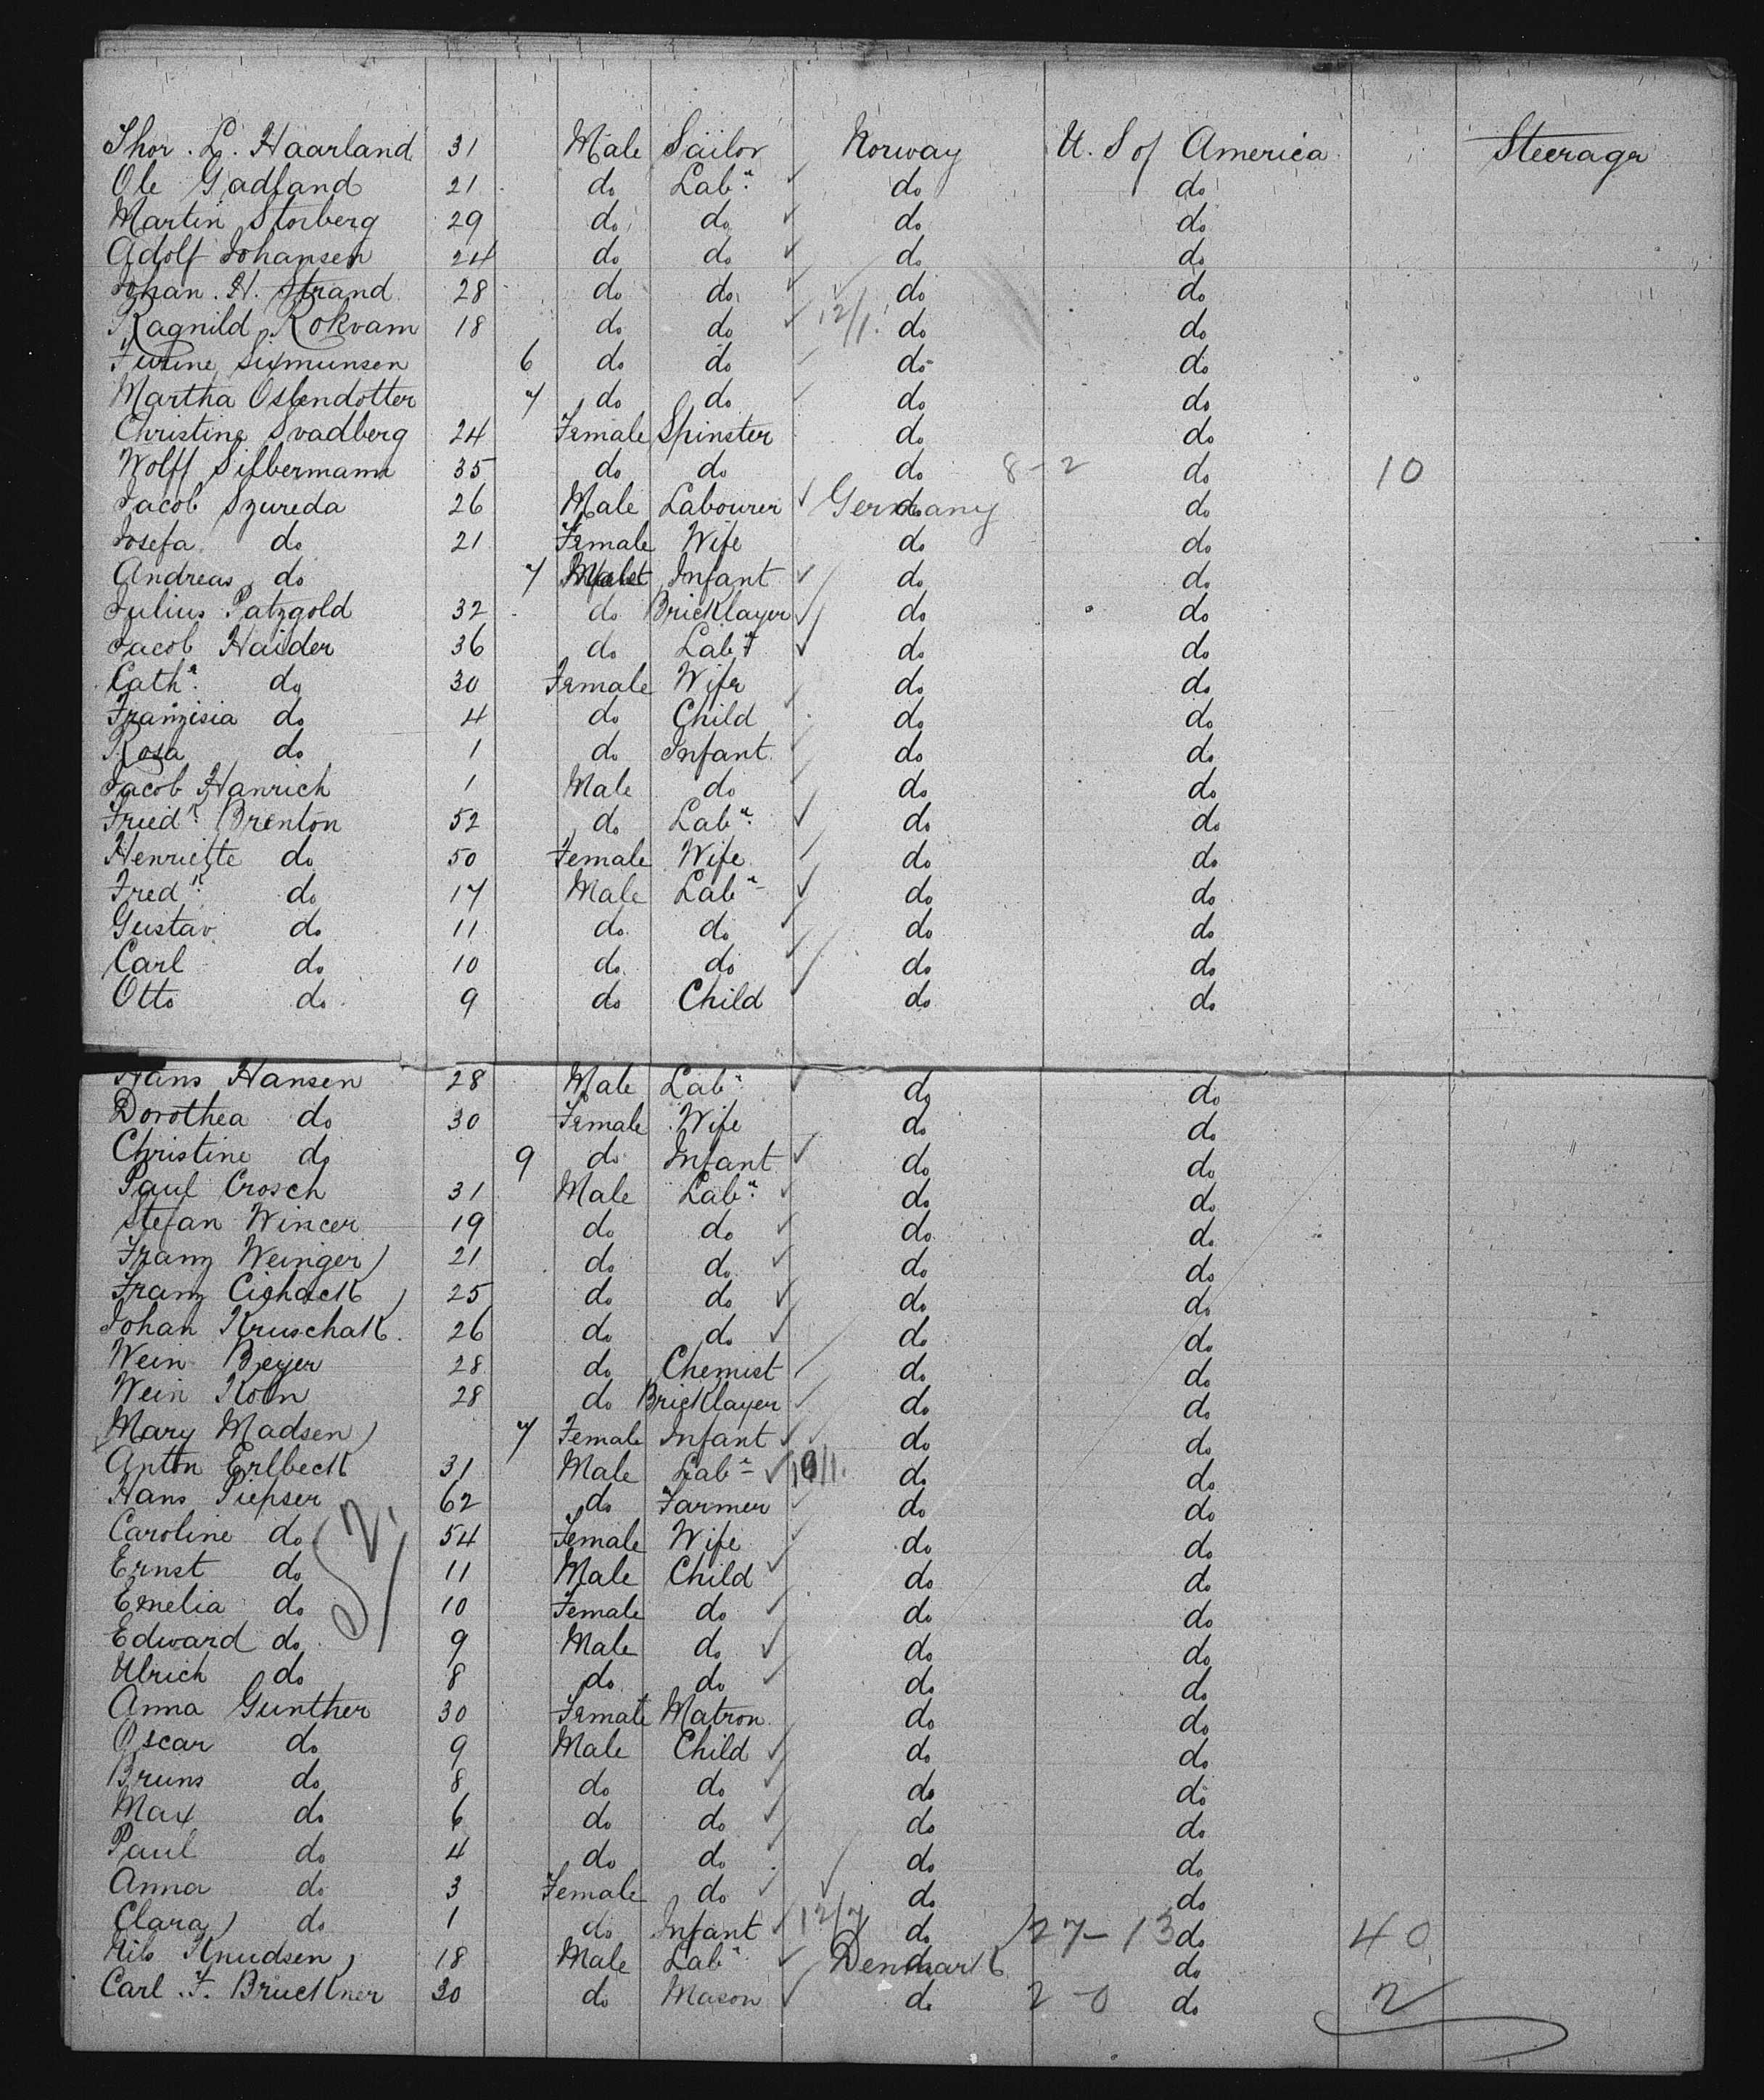 Thor. L. Haarland 31 Male Sailor Norway U. S of America Steerage
Ole Gadland 21 do Labr. do do
Martin Storberg 29 do do do do
Adolf Johansen 24 do do do do
Johan. H. Strand 28 do do do do
Ragnild Rokvam 18 do do 12/1. do do
Sigmunsen 6 do do do do
Martha Ostendotter 7 do do do do
Christine Svadberg 24 Female Spinster do do
Wolff Silbermann 35 do do do 8-2 do 10
Jacob Szureda 26 Male Labourer Germany do
Josefa do 21 Female Wife do do
Andreas do 7 Infant do do
Julius Patzgold 32 do Bricklayer do do
Jacob Haider 36 do Labr do do
Cathr. do 30 Female Wife do do
Franzisia do 4 do Child do do
Rosa do 1 do Infant do do
Jacob Hanrich 1 Male do do do
Friedr. Brenton 52 do Labr. do do
Henriette do 50 Female Wife do do
Fredk. do 17 Male Labr do do
Gustav do 11 do do do do
Carl do 10 do do do do
Otto do 9 do Child do do
Hans Hansen 28 Male Labr do do
Dorothea do 30 Female Wife do do
Christine do 9 do Infant do do
Paul Crosch 31 Male Labr. do do
Stefan Wincer 19 do do do do
Franz Weinger 21 do do do do
Franz Cighack 25 do do do do
Johan Kruschak. 26 do do do do
Wein Beyer 28 do Chemist do do
Wein Korn 28 do Bricklayer do do
Mary Madsen 7 Female Infant do do
Anton Erlbeck 31 Male Labr do do
Hans Piepser 62 do Farmer do do
Caroline do 54 Female Wife do do
Ernst do 11 Male Child do do
Emelia do 10 Female do do do
Edward do 9 Male do do do
Ulrich do 8 do do do do
Anna Gunther 30 Female Matron do do
Oscar do 9 Male Child do do
Bruns do 8 do do do do
Max do 6 do do do do
Paul do 4 do do do do
Anna do 3 Female do do do
Clara do 1 do Infant 12/7 do 27-13 do 40
Nils Knudsen 18 Male Labr Denmark do
Carl. F. Bruckner 30 do Mason do 2-0 do 2